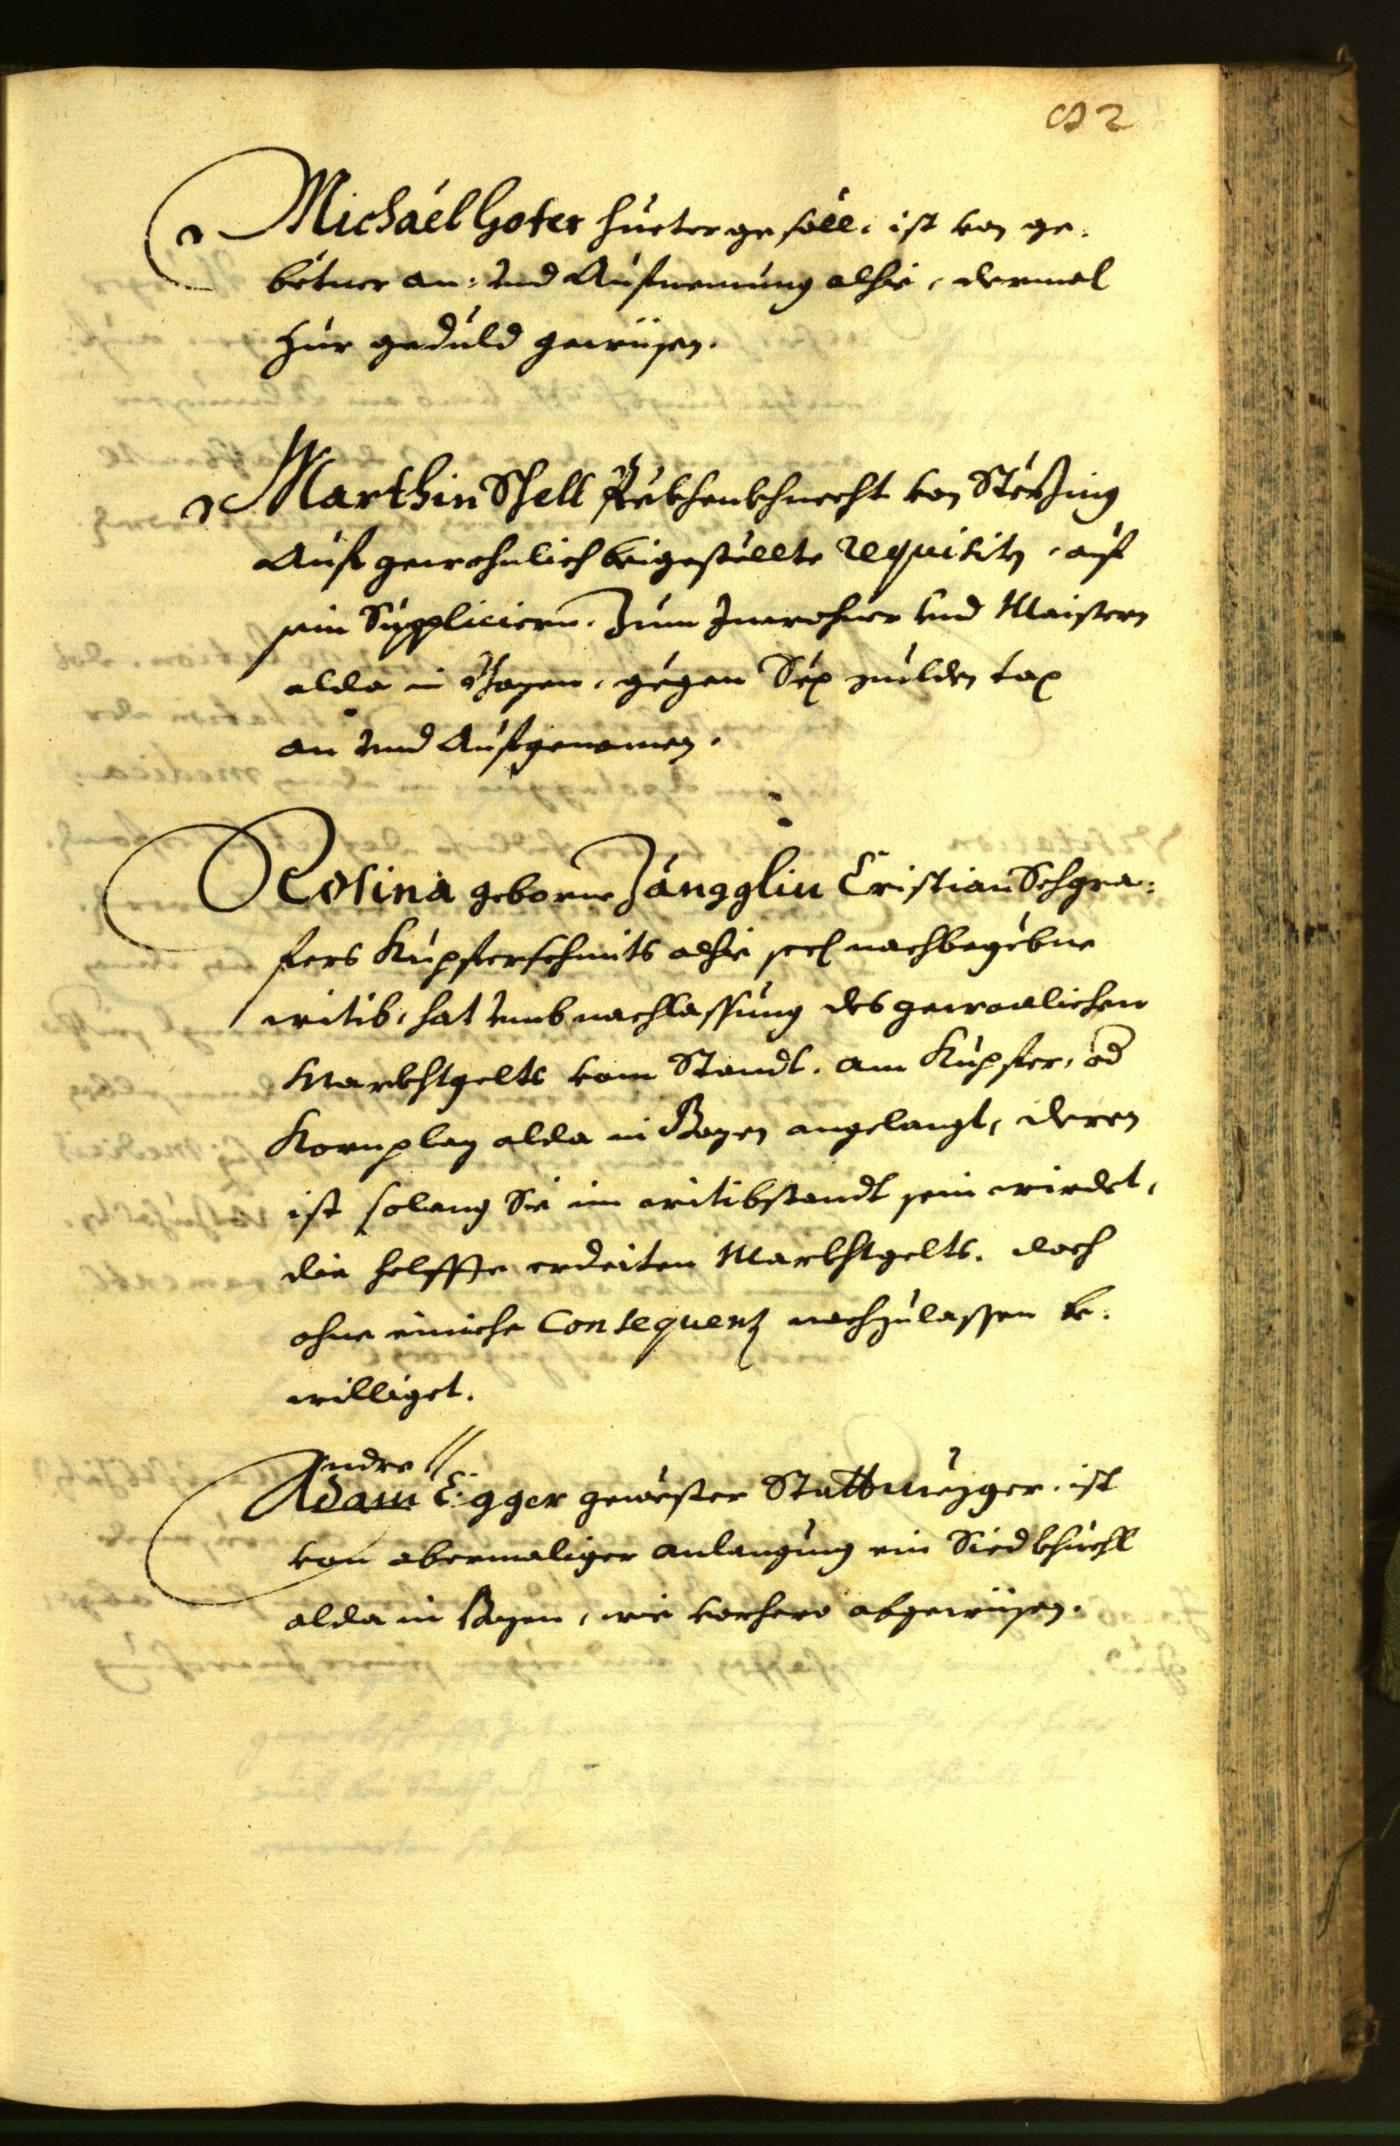 82
Michael Goter hueter gesöll, ist von ge¬
betner an: und Aufnemung alhie, dermal
zur geduld gewisen.
Marthin Schell Pekhenkhnecht von Sterzing
Auf gewohnlich beigestellte requisiten, auf
sein Suppliciern, Zum Inwohner und Maistern
alda in Bozen, gegen Sex gulden tax
an und Aufgenomen.
Rosina geborne Zängglin Cristian Schgra¬
fers Kupferschmits alhie seel nachbegebne
witib, hat umb nachlassung des gewonlichen
Markhtgelts vom Standt, am Kupfer, od
Kornplaz alda in Bozen angelangt, deren
ist solang Sie im witibstandt sein wirdet,
die helffte erdeiten Markhtgelts, doch
ohne einiche Consequenz nachzulassen be¬
williget.
Andre //
Adam Egger gewester Stattmezger, ist
von abermaliger anlangung ein Siedkhuchl
alda in Bozen, wie vorhero abgewisen.